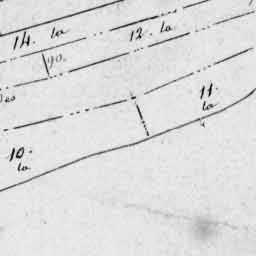 14. la
12. la
90.
11.
la
10.
la